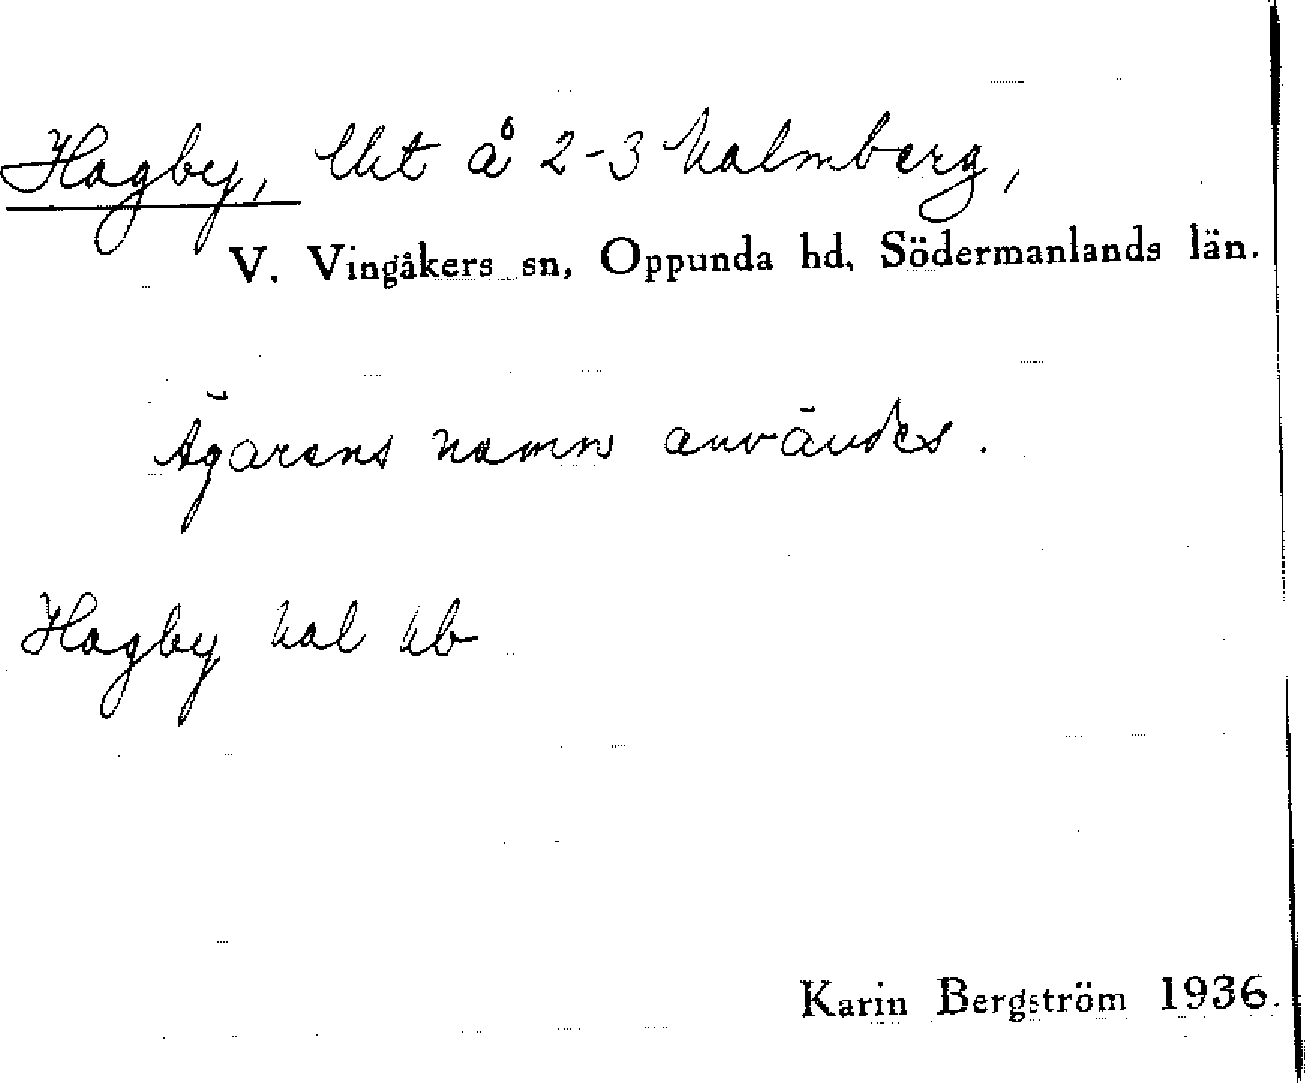 Hagby, lht å 2-3 Kalmberg,
V. Vingåkers sn, Oppunda hd, Södermanlands län.
Ägarens namn användes.
Hagby kal kb
Karin Bergström 1936.